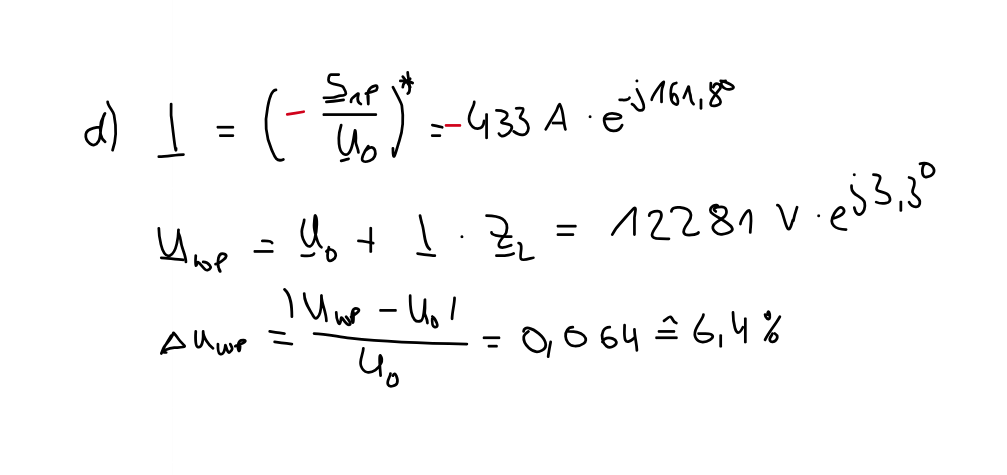 d) I = (- S₁P / U₀)* = -433 A · e^-j161,8°
U_WP = U₀ + I · Z₂ = 12281 V · e^j3,3°
ΔU_WP = |U_WP - U₀| / U₀ = 0,064 ≙ 6,4%